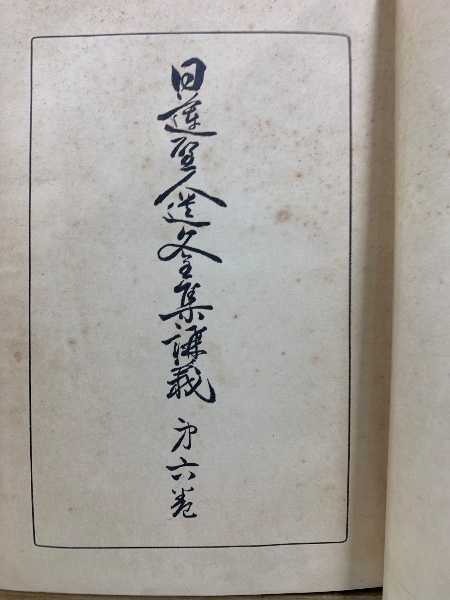 日蓮聖人遺文全集講義 第六巻